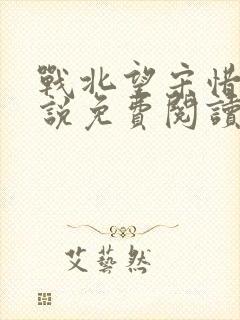 戰北望宋惜
說免費閱讀
艾藝然